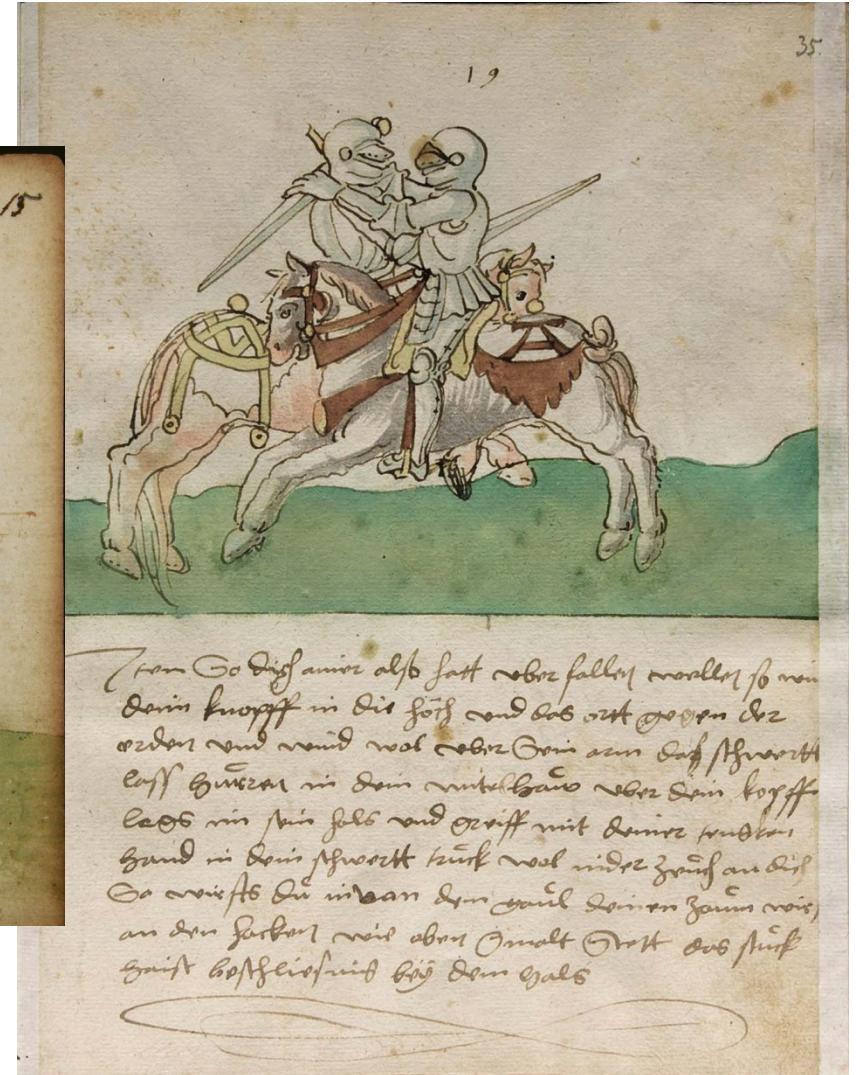 35.
19
15
Item So dich ainer alß hatt vber fallen wellen so
denn knopff in die höch vnd das ortt gegen der
erden vnd wind wol vber Sein arm daß schwertt
lass hurren in dein mitelhaw vber dein kopff
legs im sein hals vnd greiff mit deiner
hand in dein schwertt truck wol nider zeuch an dich
So wirfts du in von dem gaul deinen zaum
an den hacken wie oben gmalt Stett das stuck
haist beschliesung bey dem hals